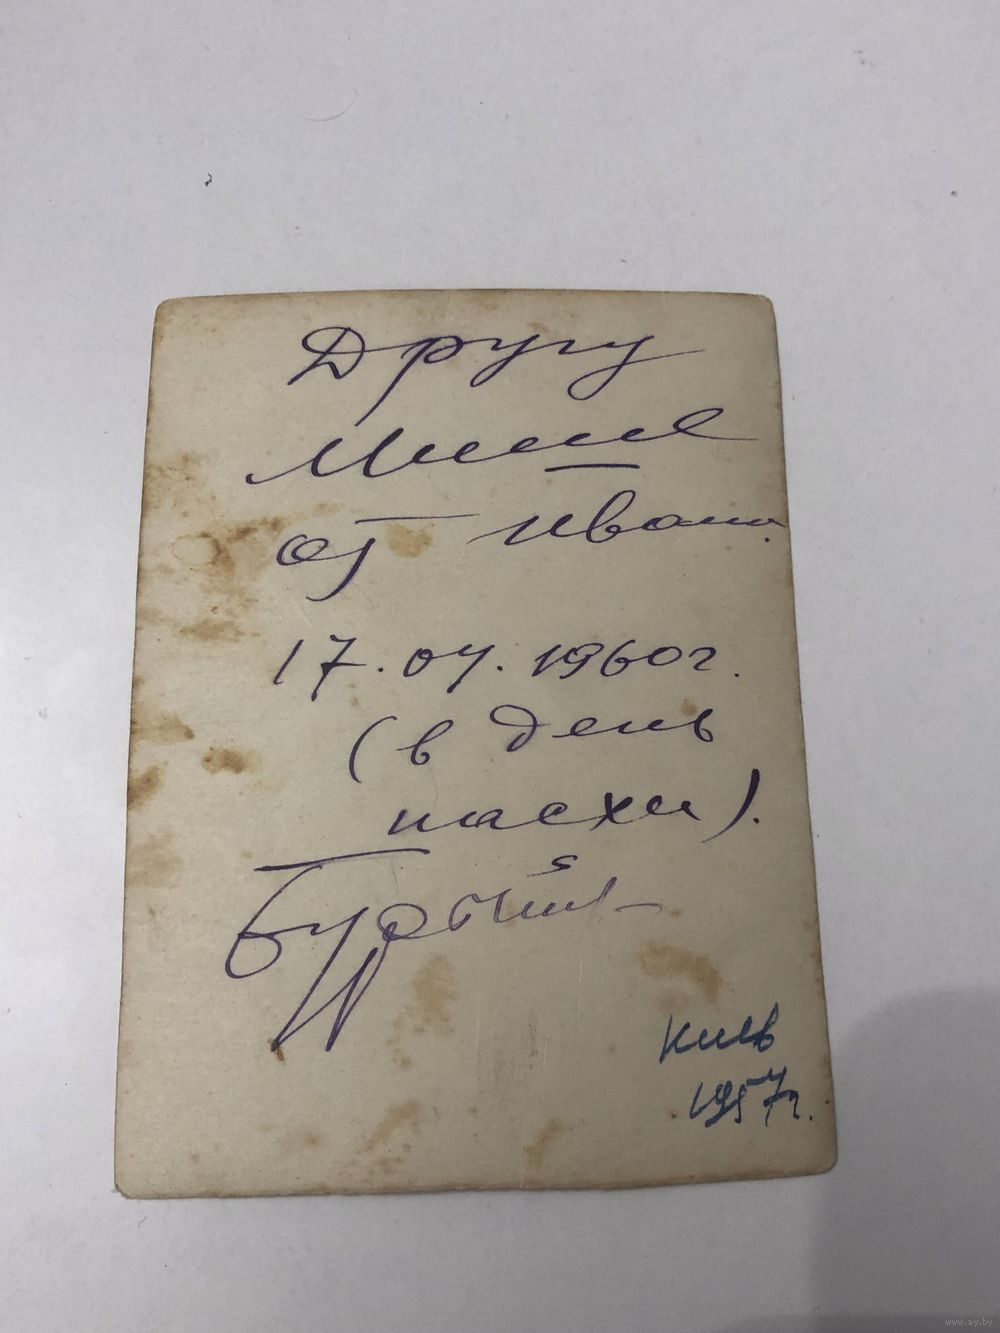 Другу
Мише
от Ивана.
17.04.1960г.
(в день
пасхи).
Киев
1957г.
www.ay.by